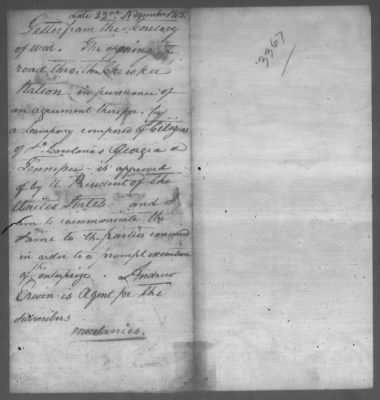 Letter from the Secretary
of war. The opening the
road thro. the Cherokee
Nation in pursuance of
an agreement therefor. by
a Company composed of Citizens
of So. Carolina Georgia &
Tennessee is approved
of by the President of the
United States and I
am to communicate the
same to the parties concerned
in order to a prompt execution
of the enterprize. Andrew
Erwin is Agent for the
subscribers
3367